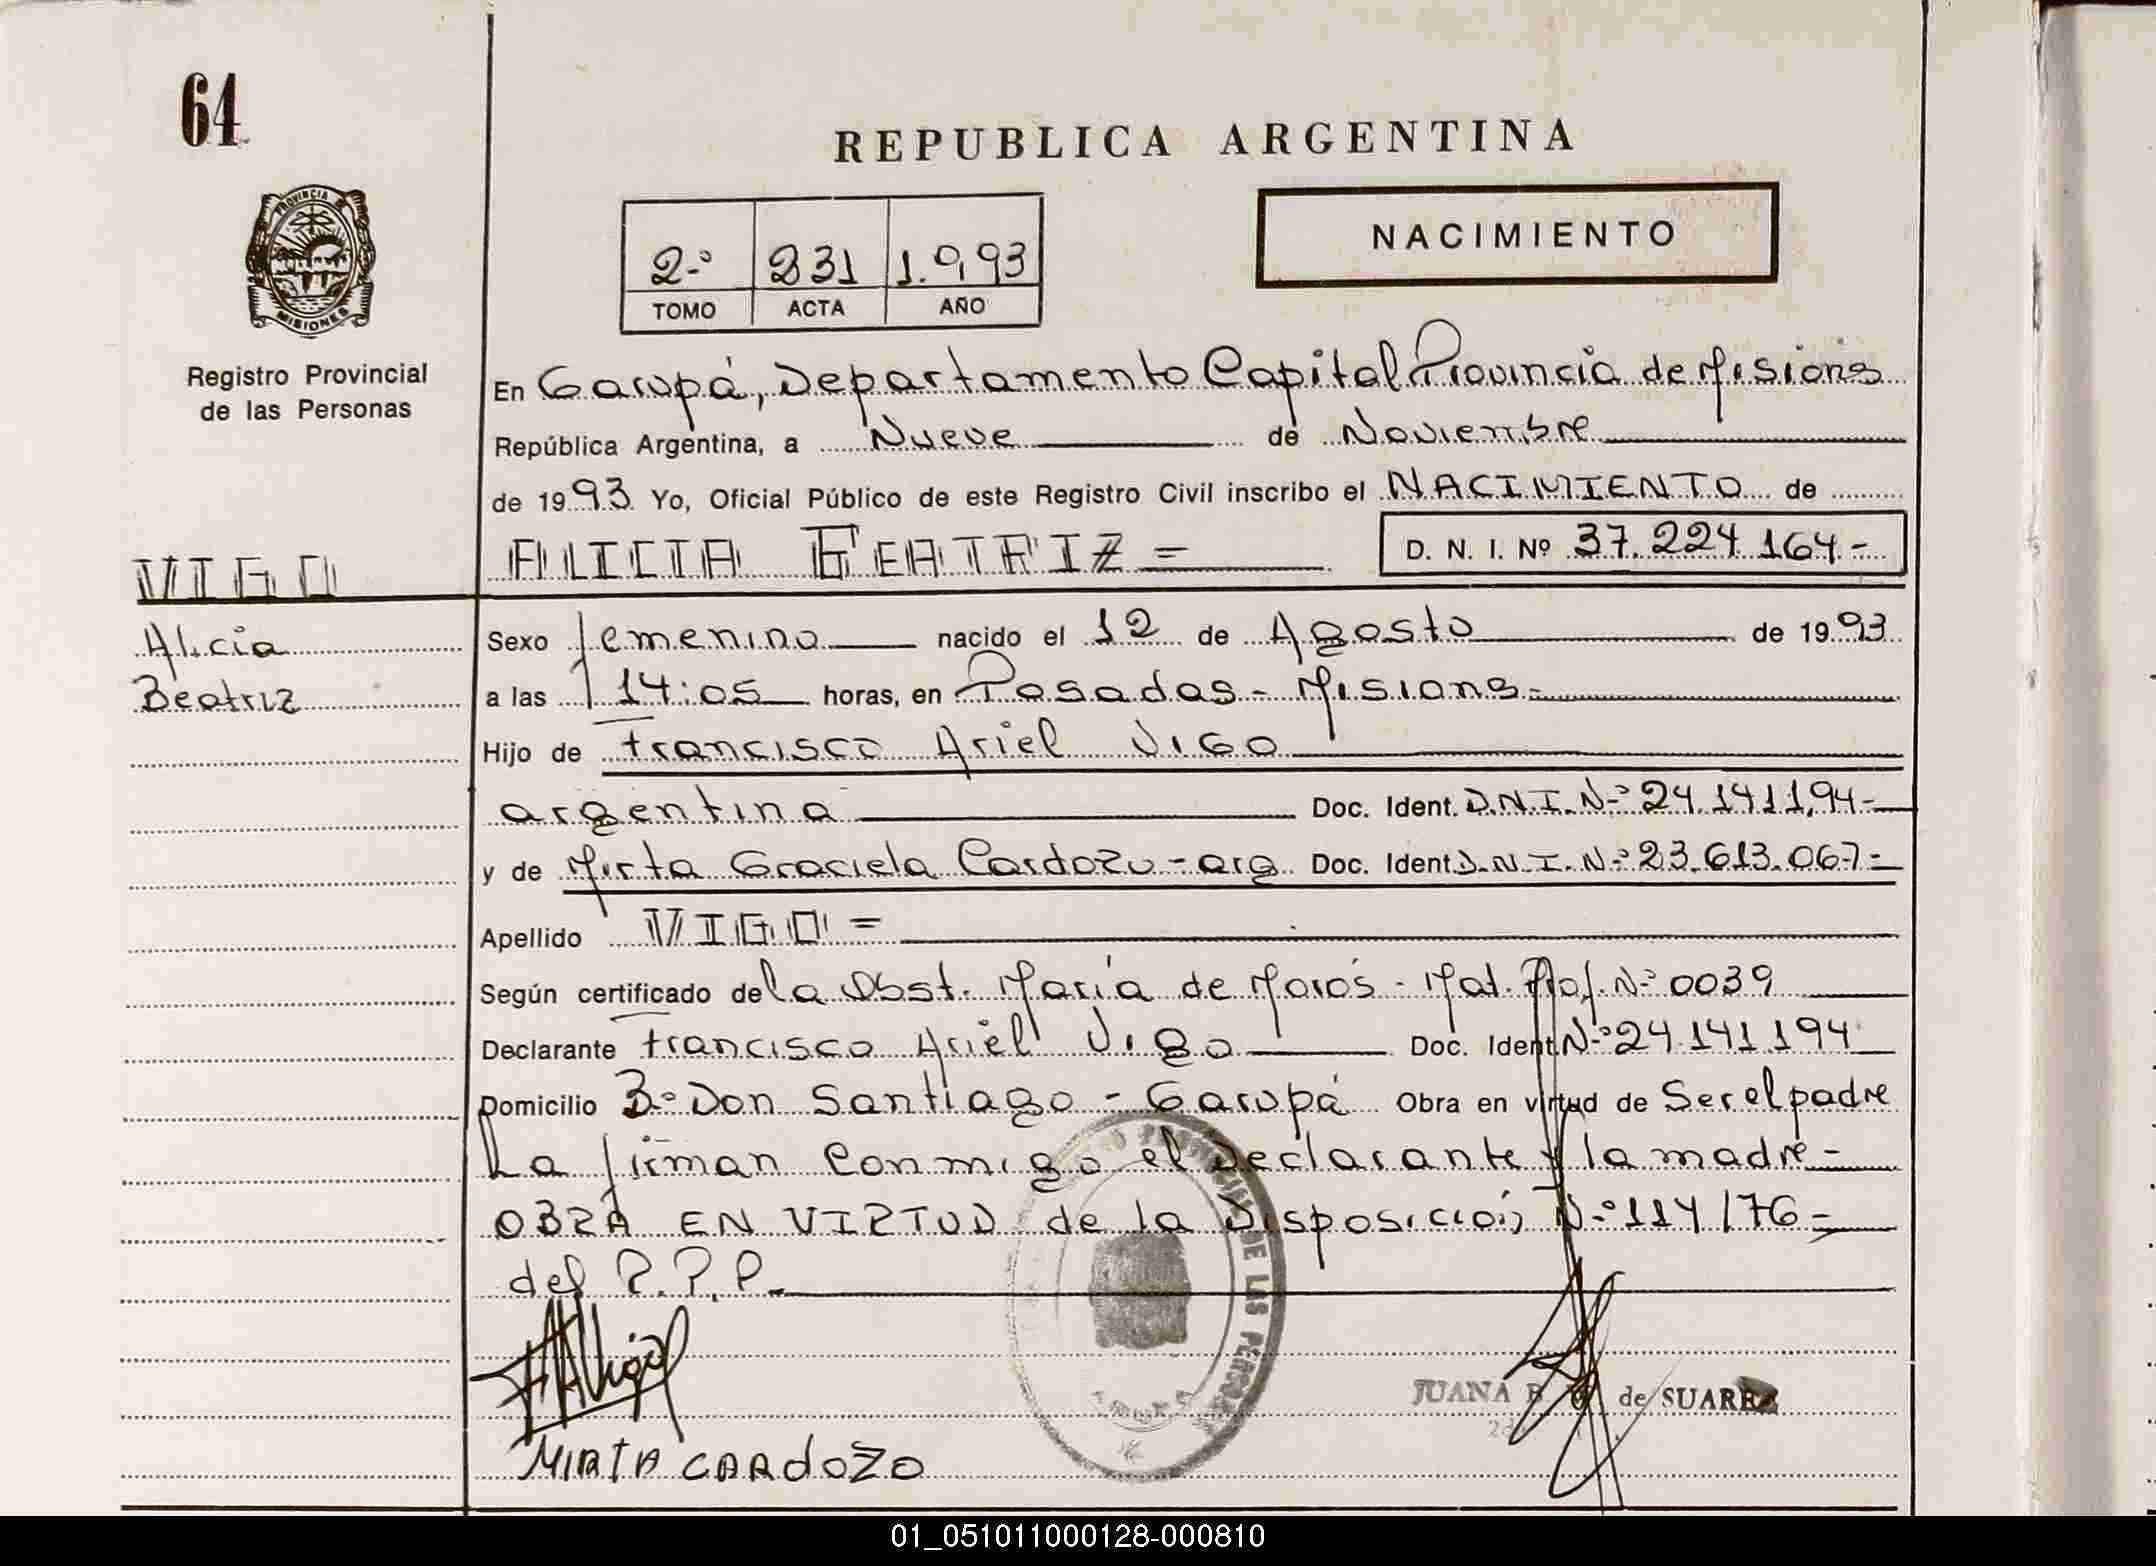 64
REPUBLICA ARGENTINA
PROVINCIA DE
MISIONES
2º 231 1.993
TOMO ACTA AÑO
NACIMIENTO
Registro Provincial
de las Personas
En Garupá, Departamento Capital Provincia de Misiones
República Argentina, a Nueve de Noviembre
de 1993 Yo, Oficial Público de este Registro Civil inscribo el NACIMIENTO de
VIGO ALICIA BEATRIZ= D. N. I. Nº 37.224.164-
Alicia
Beatriz
Sexo femenino nacido el 12 de Agosto de 1993
a las 14:05 horas, en Posadas - Misiones-
Hijo de Francisco Ariel VIGO
argentina Doc. Ident. D.N.I. Nº 24.141.194-
y de Mirta Graciela Cardozo - arg Doc. Ident D.N.I. Nº 23.613.067=
Apellido VIGO=
Según certificado de la Obst. María de Morós - Mat. Prof. Nº 0039
Declarante Francisco Ariel Vigo Doc. Ident Nº 24.141.194
Domicilio Bº Don Santiago - Garupá Obra en virtud de Ser el padre
La firman conmigo el Declarante y la madre-
OBRA EN VIRTUD de la Disposición Nº 114/76=
del R.P.P.
FAVigo
JUANA B de SUAREZ
MIRTA CARDOZO
DE LAS PERSONAS
01_051011000128-000810